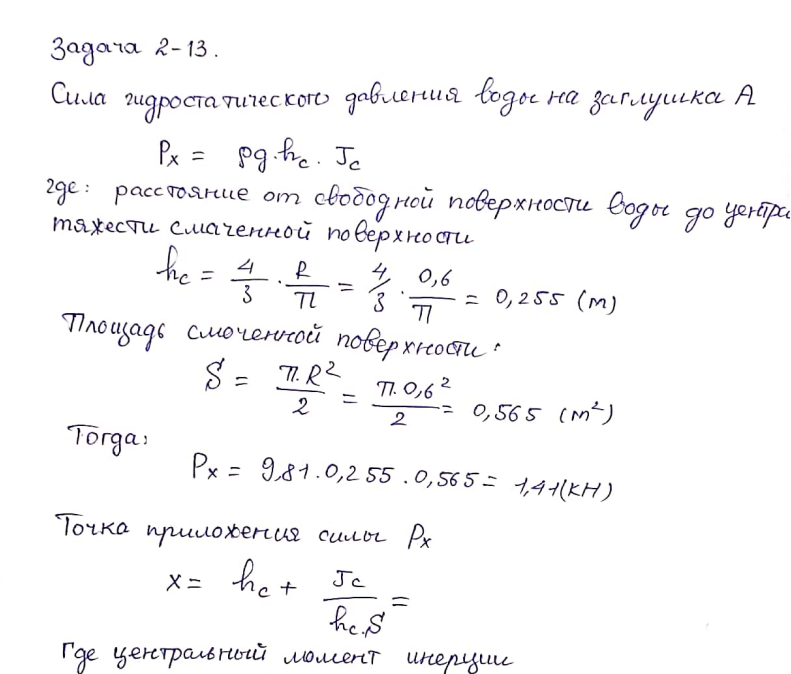 Задача 2-13.
Сила гидростатического давления воды на заглушка А
Px = ρg·hc· Jc
где: расстояние от свободной поверхности воды до центра
тяжести смаченной поверхности
hc = 4/3 · R/π = 4/3 · 0,6/π = 0,255 (m)
Площадь смоченной поверхности:
S = π.R²/2 = π.0,6²/2 = 0,565 (m²)
Тогда:
Px = 9,81.0,255.0,565 = 1,41(кН)
Точка приложения силы Px
x = hc + Jc/hc.S =
Где центральный момент инерции